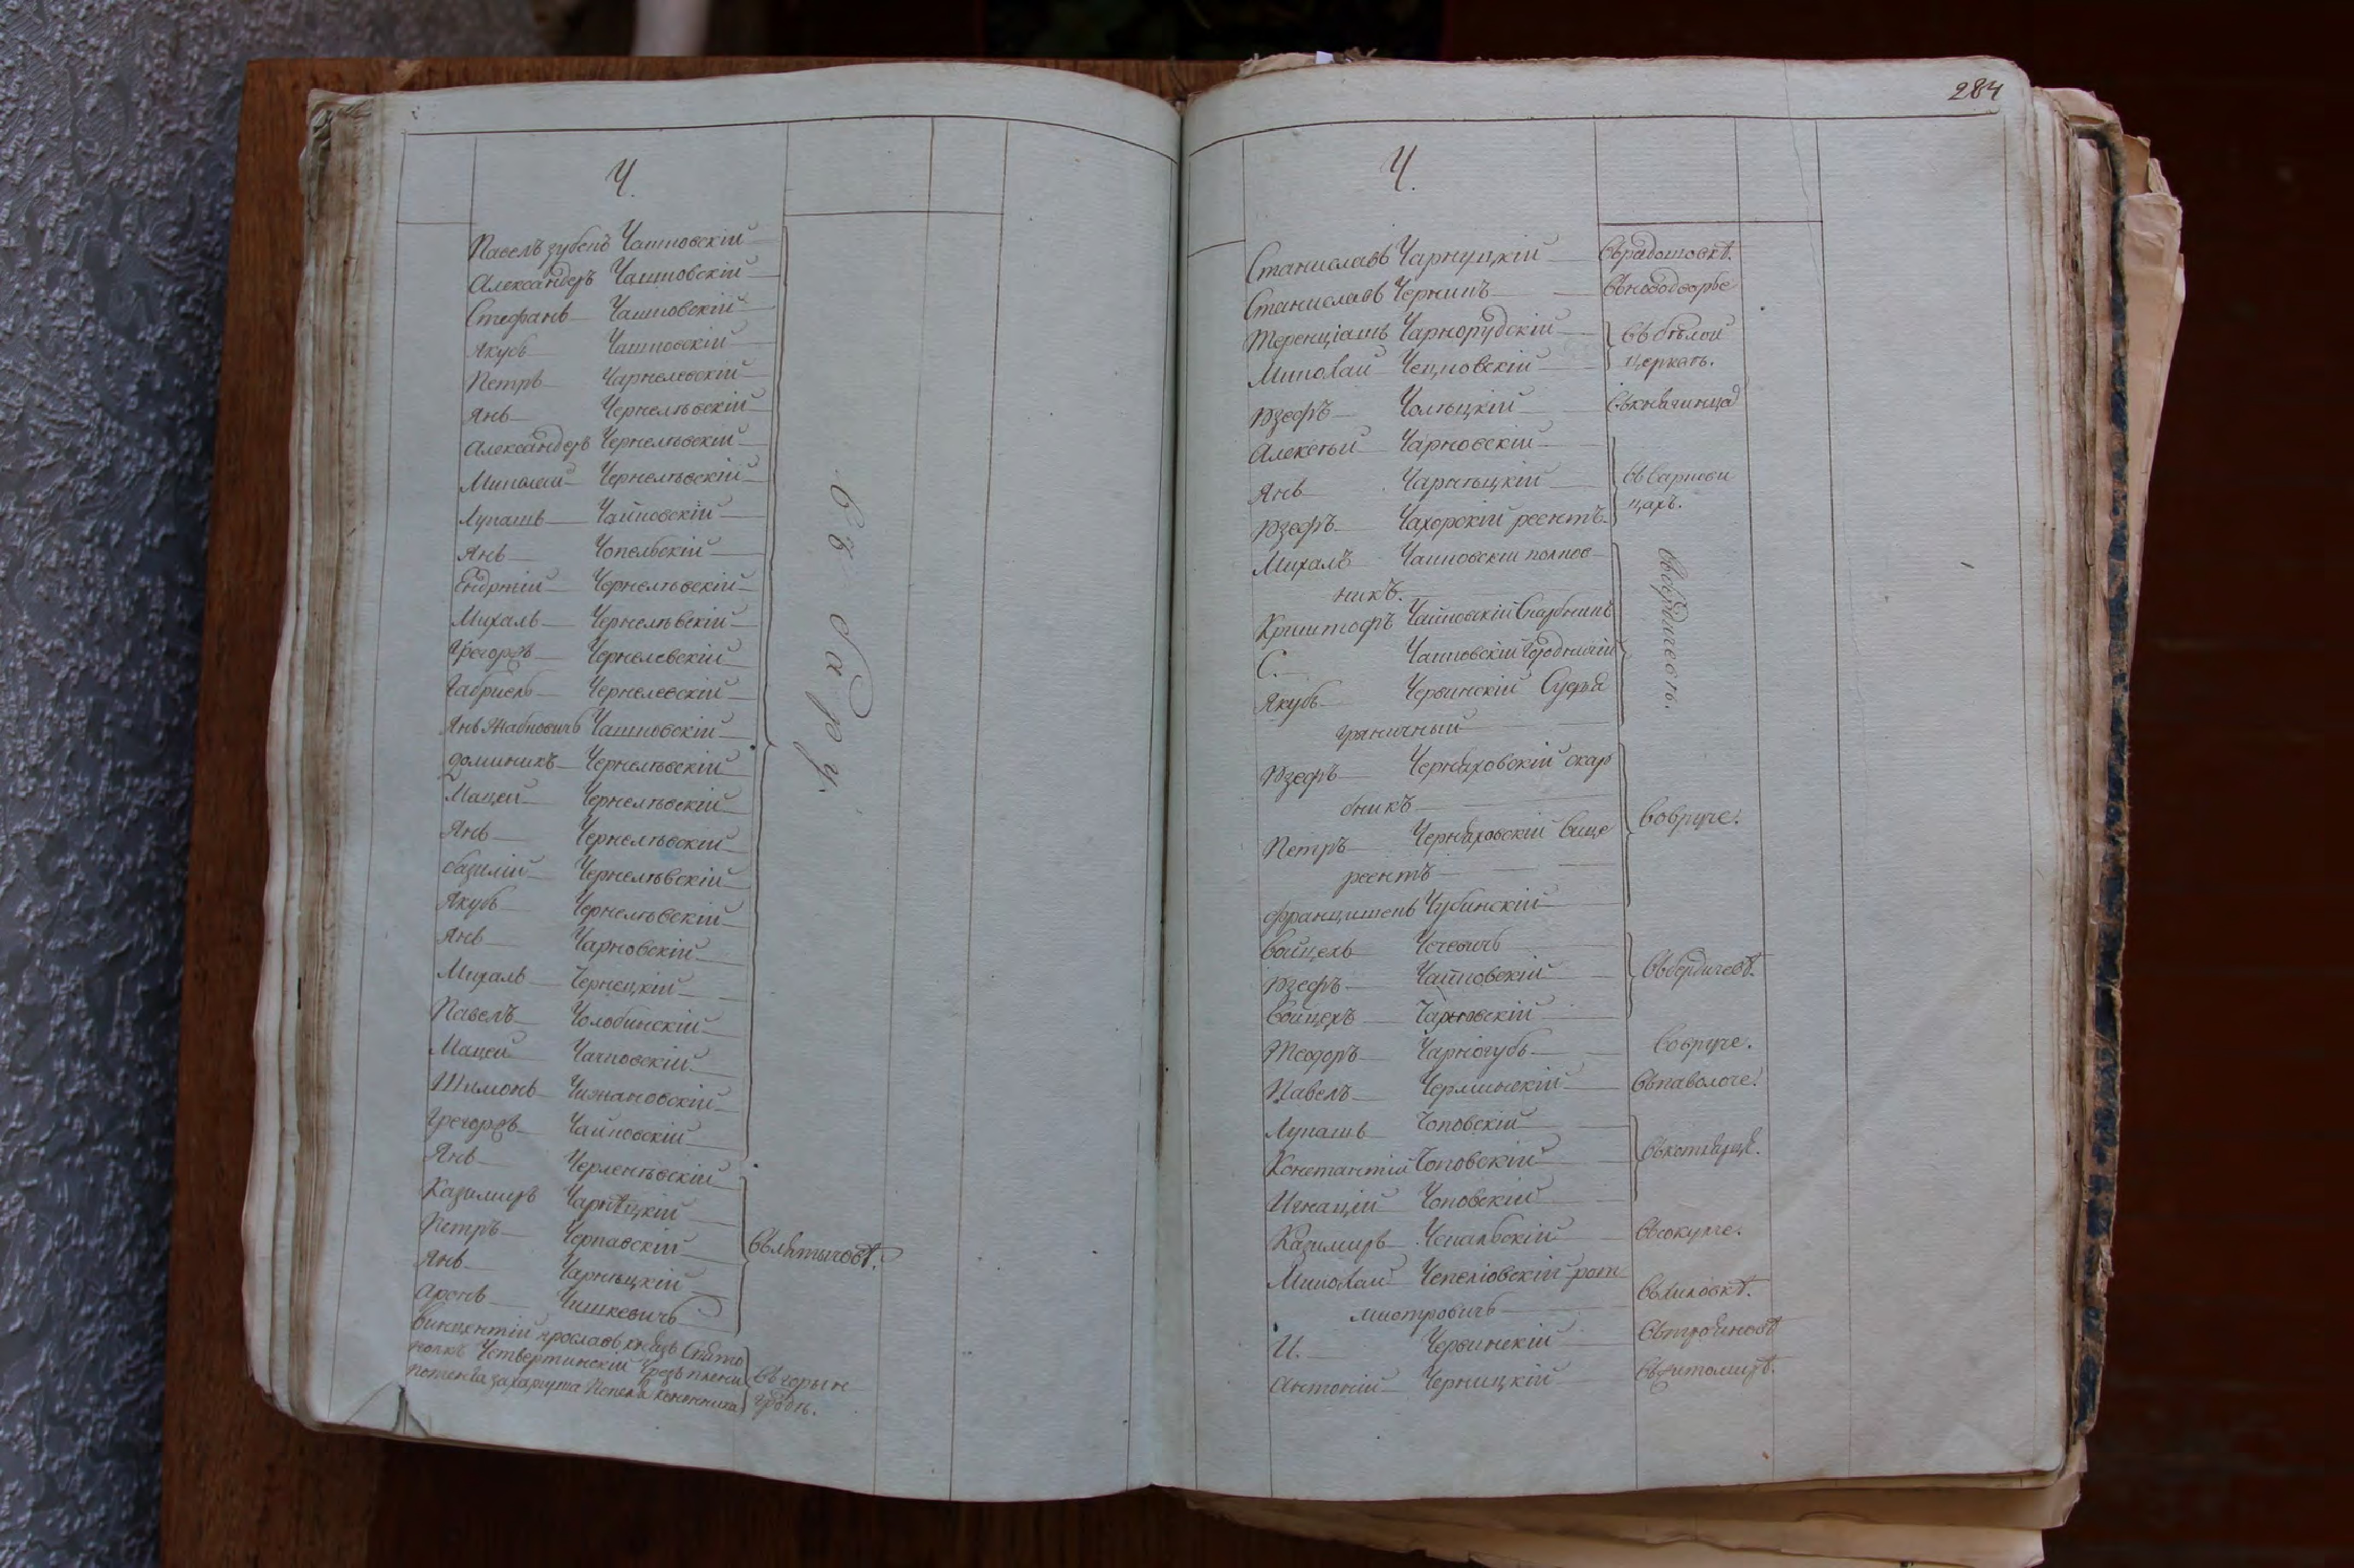 Ч.
Павелъ зубень Чашковскій
Александеръ Чашковскій
Стефанъ Чашковскій
Якубъ Чашковскій
Петръ Чарнелевскій
Янъ Чернелѣвскій
Александеръ Чернелѣвскій
Миколай Чернелѣвскій
Лукашъ Чайковскій
Янъ Чопельскій
Ендржій Чернелѣвскій
Михалъ Чернелѣвскій
Грегоржъ Чернелевскій
Габріель Чернелевскій
Янъ Чашковскій
Доминикъ Чернелѣвскій
Мацей Чернелѣвскій
Янъ Чернелѣвскій
Базилій Чернелѣвскій
Якубъ Чернелѣвскій
Янъ Чарновскій
Михалъ Чернецкій
Павелъ Чолобинскій
Мацей Чачковскій
Шимонъ Чижановскій
Грегоржъ Чайковскій
въ Бару.
Янъ Черленѣвскій
Казимиръ Чарнѣцкій
Петръ Черпавскій
Янъ Чарнѣцкій
Аронъ Чишкевичъ
Вълятычовѣ.
Винцентій Ярославъ князь Свято
полкъ Четвертинскій чрезъ плени
потента захариуша
Въ горын
градѣ.
284
Ч.
Станиславъ Чарнуцкій Въ радомовкѣ.
Станиславъ Черникъ Въ новодворье
Теренціашъ Чарнорудскій Въ бѣлой
Миколай Чецновскій церквѣ.
Юзефъ Чолѣцкій
Алексѣй Чарновскій
Янъ Чарнѣцкій Въ Варнови
цахъ.
Юзефъ Чахорскій реентъ.
Михалъ Чайковскій полков
никъ.
Криштофъ Чайковскій Скарбникъ
С. Чайковскій Городничій
Якубъ Червинскій Судья
граничный
Въ бердичевѣ.
Юзефъ Черняховскій скар
бникъ
Петръ Черняховскій Вице
реентъ
Вовруче.
Францишекъ Чубинскій
Войцехъ Чечевичъ
Юзефъ Чайковскій Въ бердичевѣ.
Войцехъ Чарновскій
Теодоръ Чарногубъ Вовруче.
Павелъ Черминскій Въ паволоче.
Лукашъ Чоповскій
Константій Чоповскій Въ котлярце.
Игнацій Чоповскій
Казимиръ Чепальскій Въ вокулче.
Миколай Чепеліовскій рот
мистровичъ
Въ Липовкѣ.
И. Червинскій
Антоній Черницкій Въ житомирѣ.